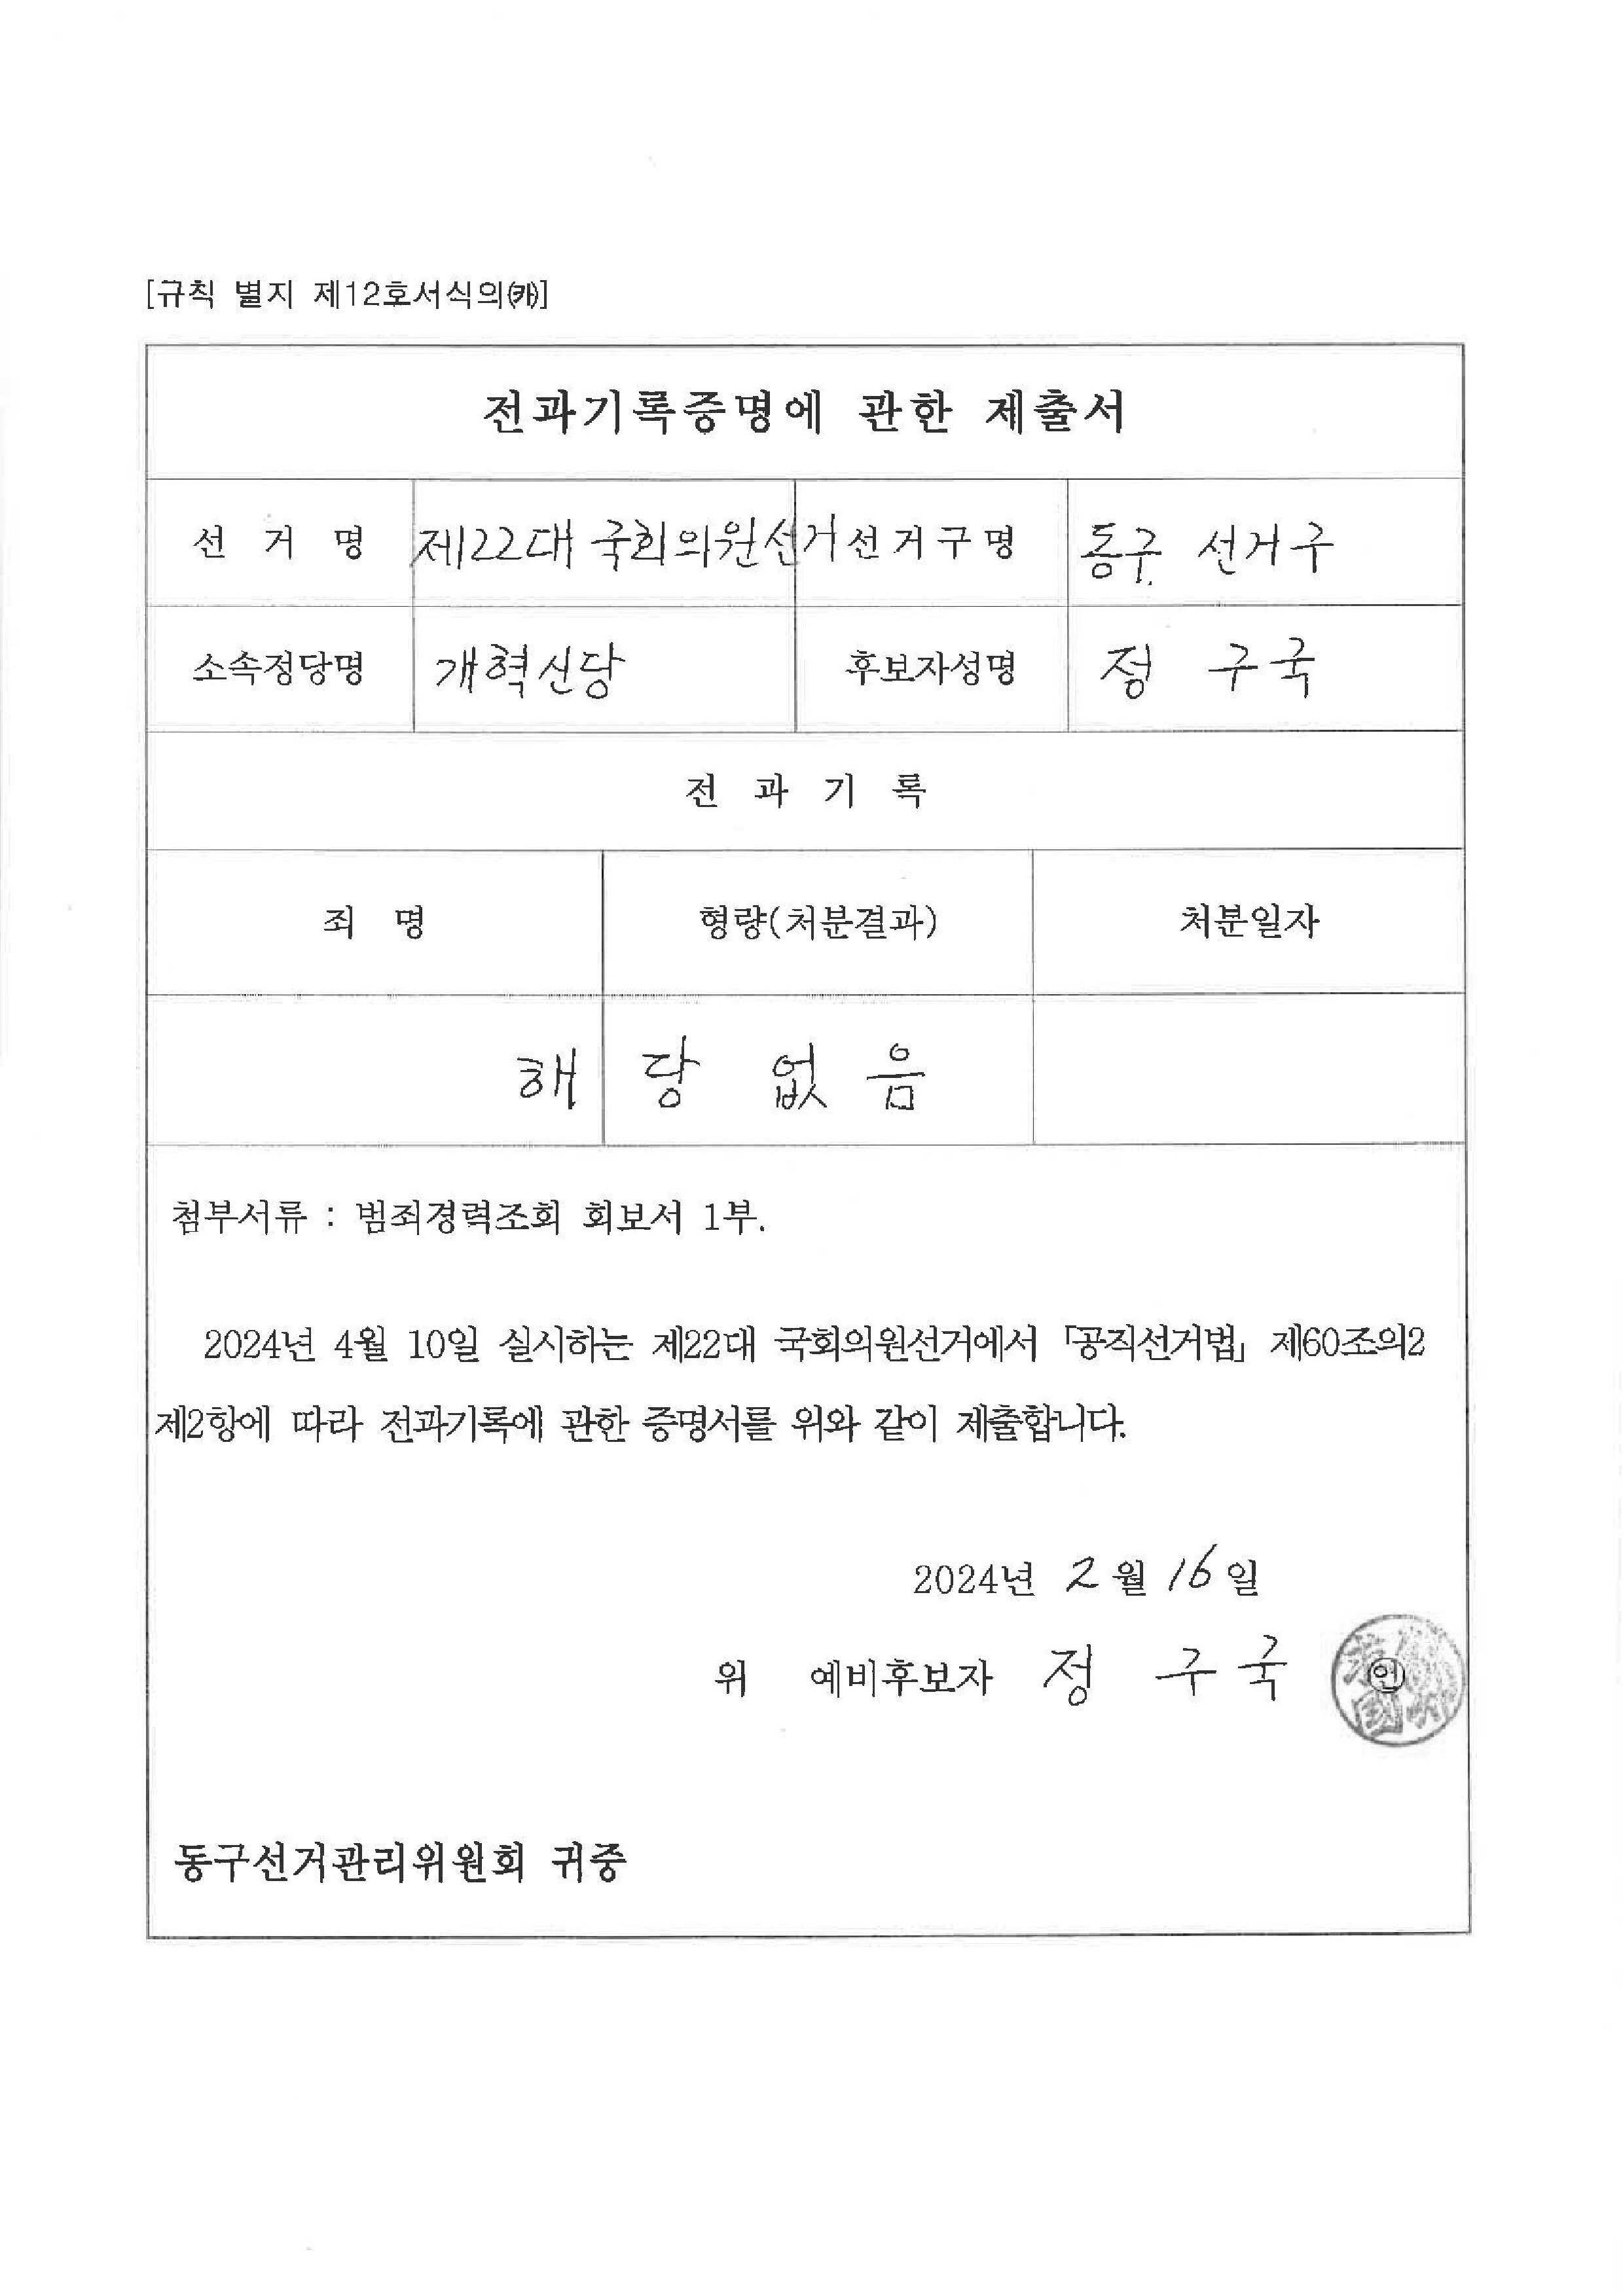 [규칙 별지 제12호서식의㈎]
전과기록증명에 관한 제출서
선 거 명 제22대 국회의원선거 선거구명 동구 선거구
소속정당명 개혁신당 후보자성명 정 구국
전 과 기 록
죄 명 형량(처분결과) 처분일자
해 당 없 음
첨부서류 : 범죄경력조회 회보서 1부.
2024년 4월 10일 실시하는 제22대 국회의원선거에서 「공직선거법」 제60조의2
제2항에 따라 전과기록에 관한 증명서를 위와 같이 제출합니다.
2024년 2월 16일
위 예비후보자 정 구국 ㊞
동구선거관리위원회 귀중